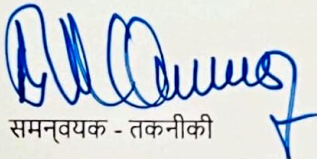 समन्‌वयक - तकनीकी